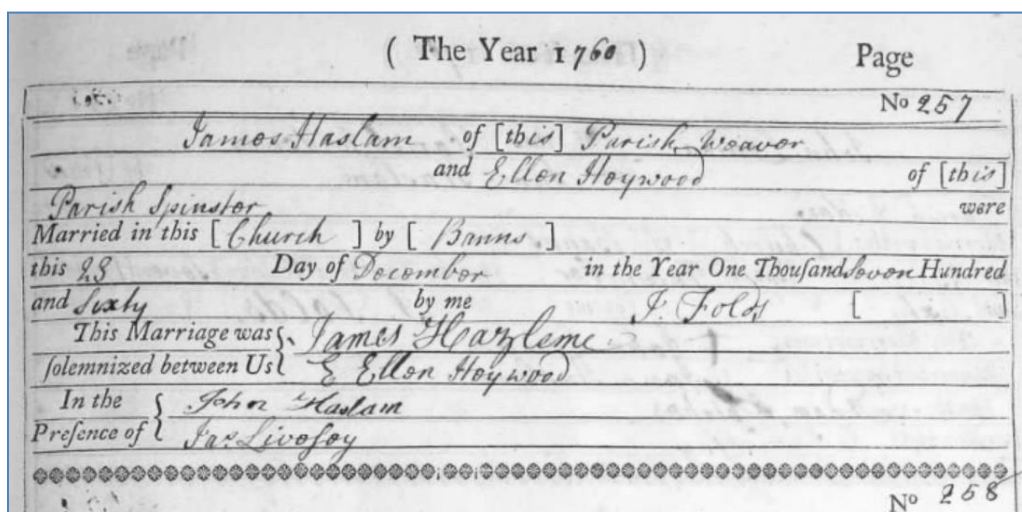 ( The Year 1760 ) Page
No 257
James Haslam of [this] Parish Weaver
and Ellen Heywood of [this]
Parish Spinster were
Married in this [ Church ] by [ Banns ]
this 23 Day of December in the Year One Thouſand Seven Hundred
and Sixty by me J. Folds [ ]
This Marriage was { James Hazleme
ſolemnized between Us { E Ellen Heywood
In the { John Haslam
Preſence of { Jas Liveſey
No 258